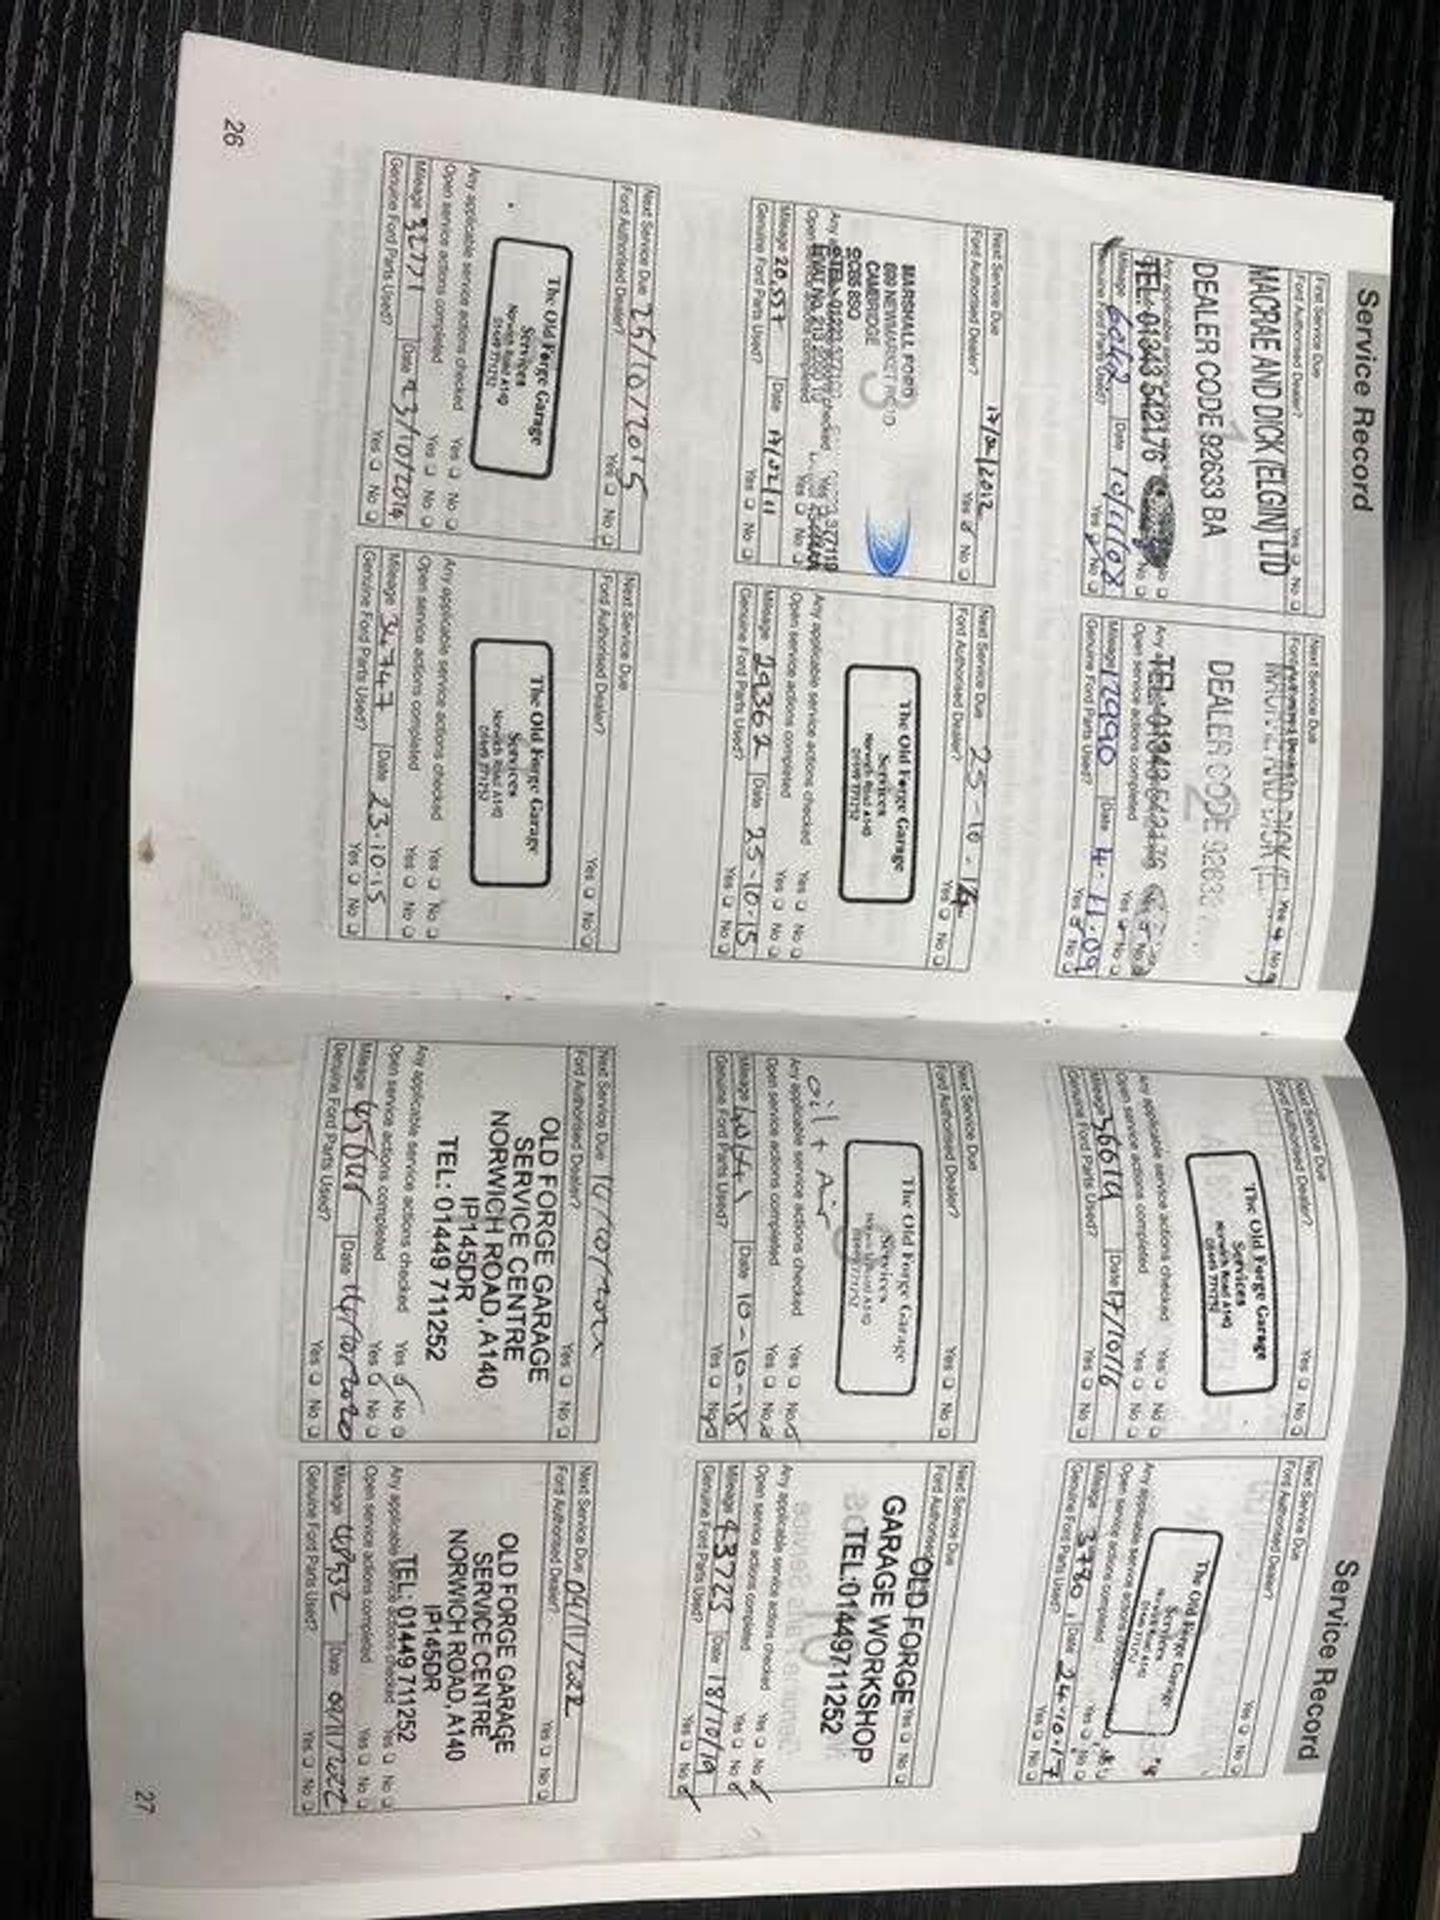 Service Record
First Service Due
Ford Authorised Dealer? Yes No
MACRAE AND DICK (ELGIN) LTD
DEALER CODE 92633 BA
TEL: 01343 542176
Mileage 6042 Date 10/11/08
Genuine Ford Parts Used? Yes No
Next Service Due
DEALER CODE 92633
2
TEL: 01343 542176
Open service actions completed Yes No
Mileage 12990 Date 4.11.09
Genuine Ford Parts Used? Yes No
Next Service Due 17/02/2012
Ford Authorised Dealer? Yes No
MARSHALL FORD
699 NEWMARKET ROAD
CAMBRIDGE
3
Mileage 20,557 Date 17/02/11
Genuine Ford Parts Used? Yes No
Next Service Due 25-10-14
Ford Authorised Dealer? Yes No
The Old Forge Garage
Services
Norwich Road A140
01449 771252
Any applicable service actions checked Yes No
Open service actions completed Yes No
Mileage 29362 Date 25-10-15
Genuine Ford Parts Used? Yes No
Next Service Due 25/10/2015
Ford Authorised Dealer? Yes No
The Old Forge Garage
Services
Norwich Road A140
01449 771252
Any applicable service actions checked Yes No
Open service actions completed Yes No
Mileage 32771 Date 23/10/2014
Genuine Ford Parts Used? Yes No
Next Service Due
Ford Authorised Dealer? Yes No
The Old Forge Garage
Services
Norwich Road A140
01449 771252
Any applicable service actions checked Yes No
Open service actions completed Yes No
Mileage 34747 Date 23.10.15
Genuine Ford Parts Used? Yes No
26
Service Record
Next Service Due
Ford Authorised Dealer? Yes No
The Old Forge Garage
Services
Norwich Road A140
01449 771252
Any applicable service actions checked Yes No
Open service actions completed Yes No
Mileage 36619 Date 17/10/16
Genuine Ford Parts Used? Yes No
Next Service Due
Ford Authorised Dealer? Yes No
The Old Forge Garage
Services
Norwich Road A140
Any applicable service actions checked
Open service actions completed Yes No
Mileage 3780 Date 24-10-17
Genuine Ford Parts Used? Yes No
Next Service Due
Ford Authorised Dealer? Yes No
The Old Forge Garage
Services
Any applicable service actions checked Yes No
oil + Air
Open service actions completed Yes No
Mileage Date 10-10-18
Genuine Ford Parts Used? Yes No
Next Service Due
Ford Authorised Yes No
OLD FORGE
GARAGE WORKSHOP
TEL:01449711252
Any applicable service actions checked Yes No
Open service actions completed Yes No
Mileage 43723 Date 18/10/19
Genuine Ford Parts Used? Yes No
Next Service Due
Ford Authorised Dealer? Yes No
OLD FORGE GARAGE
SERVICE CENTRE
NORWICH ROAD, A140
IP145DR
TEL: 01449 711252
Any applicable service actions checked Yes No
Open service actions completed Yes No
Mileage Date 14/10/2020
Genuine Ford Parts Used? Yes No
Next Service Due 09/11/2022
Ford Authorised Dealer? Yes No
OLD FORGE GARAGE
SERVICE CENTRE
NORWICH ROAD, A140
IP145DR
TEL: 01449 711252
Any applicable service actions checked Yes No
Open service actions completed Yes No
Mileage 48532 Date 09/11/2022
Genuine Ford Parts Used? Yes No
27